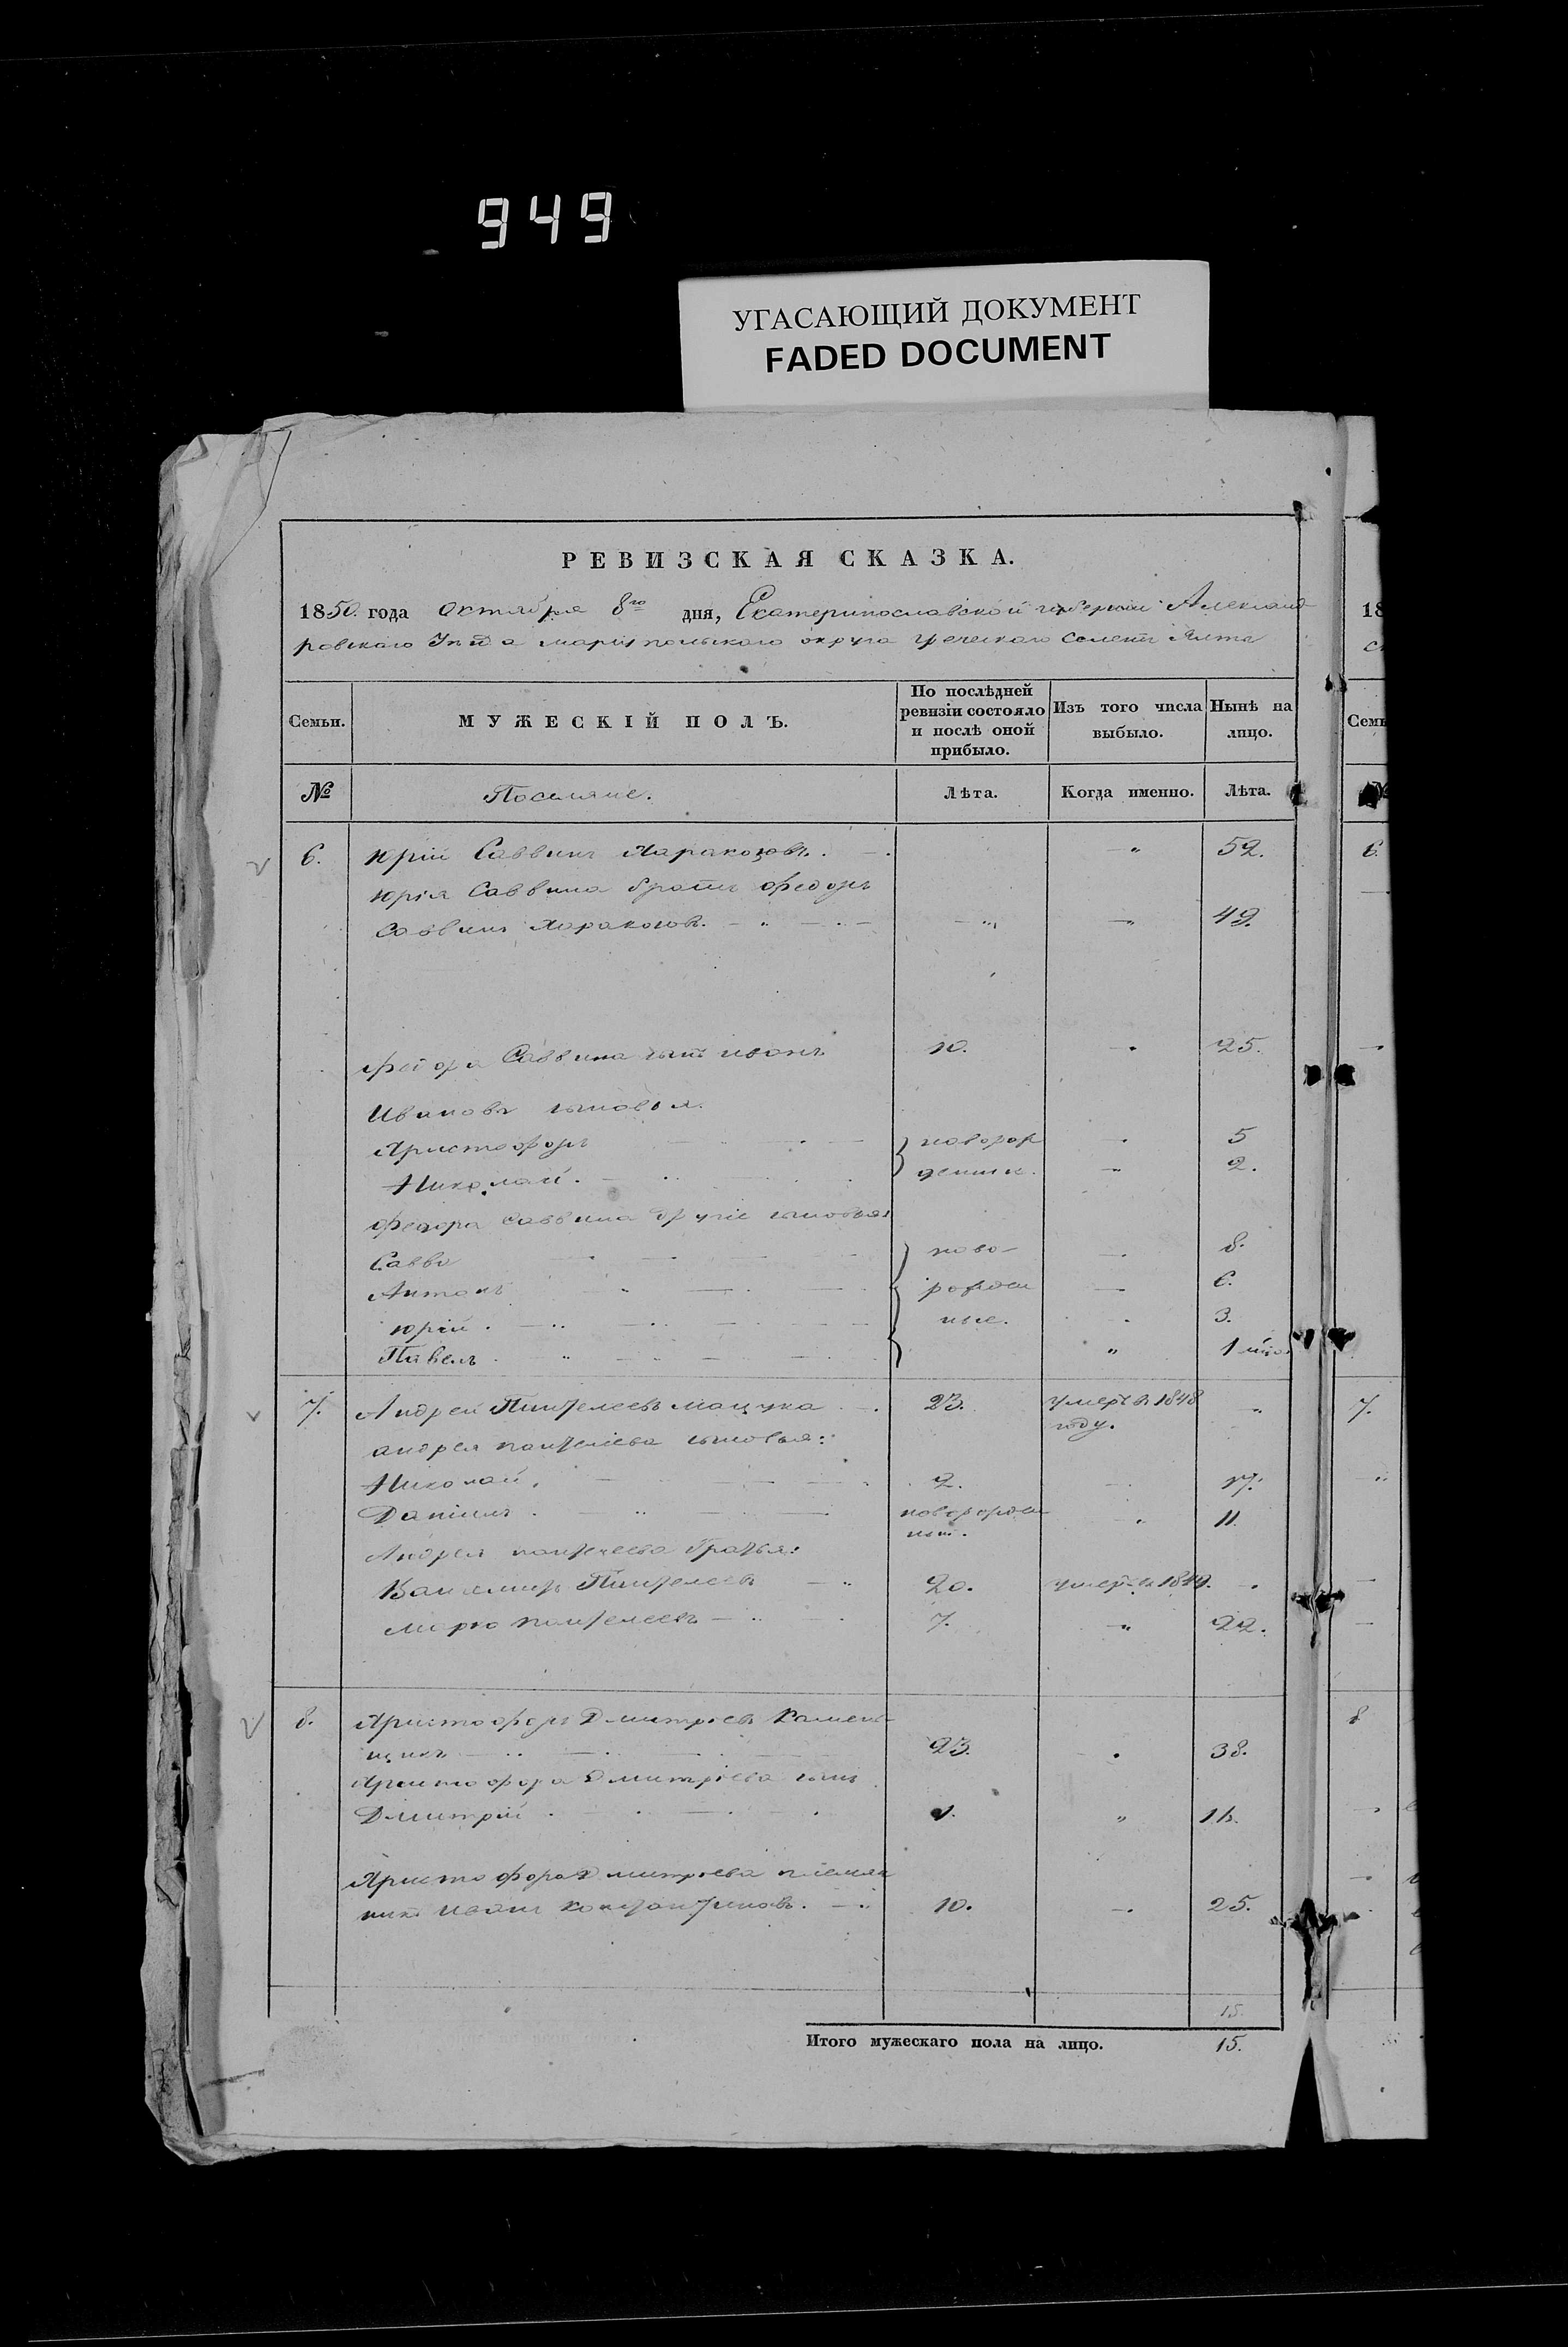 949
УГАСАЮЩИЙ ДОКУМЕНТ
FADED DOCUMENT
РЕВИЗСКАЯ СКАЗКА.
1850. года Октября 8го дня, Екатеринославской губернии Александ
ровскаго Уѣзда маріупольскаго округа греческаго Ялта
Семьи. МУЖЕСКІЙ ПОЛЪ. По послѣдней ревизіи состояло и послѣ оной прибыло. Изъ того числа выбыло. Нынѣ на лицо.
№ Поселяне. Лѣта. Когда именно. Лѣта.
6. Юрій Саввинъ 52.
Юрія Саввина братъ Федоръ
Саввинъ 49.
Федора Саввина сынъ Иванъ 10. 25.
Ивановы сыновья.
Христофоръ новорож 5
Николай. денные. 2.
Федора Саввина другіе сыновья:
Савва ново- 8.
Антонъ рожден 6.
Юрій. ные. 3.
Павелъ. 1
7. Андрей Пантелеевъ мацука 23. умеръ в. 1848 году.
андрея пантелеева сыновья:
Николай. 2. 17.
Даніилъ. новорожден ный. 11.
Андрея пантелеева братья:
Пантелеевъ 20. умеръ в. 1849.
Марко пантелеевъ 7. 22.
8. Христофоръ Дмитріевъ Камен
щикъ 23. 38.
Христофора Дмитріева сынъ
Дмитрій. 1. 16.
Христофора Дмитріева племян
никъ Иванъ Константиновъ. 10. 25.
15.
Итого мужескаго пола на лицо. 15.
18
Семь
№
6.
7.
8